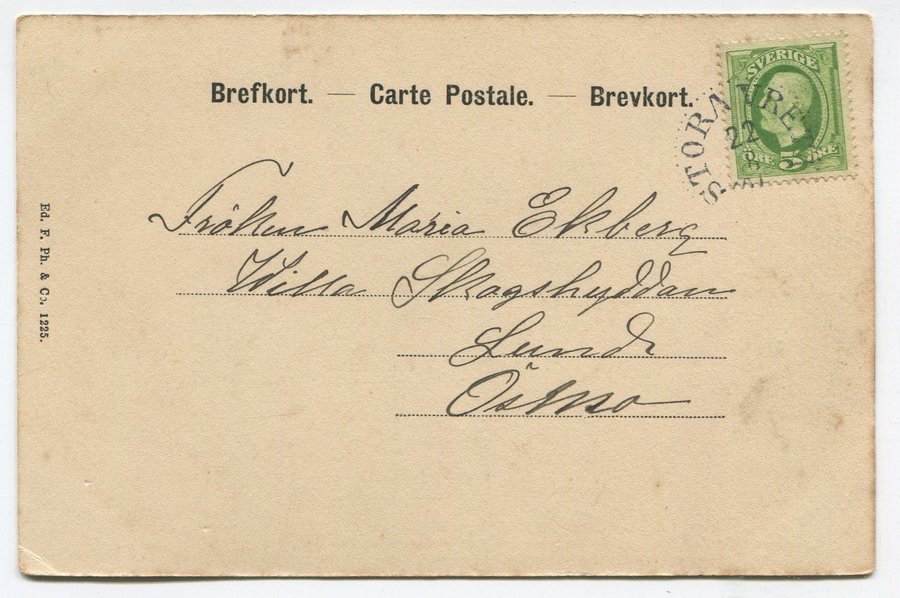 Brefkort. — Carte Postale. — Brevkort.
SVERIGE
5
ÖRE ÖRE
STORA
22
8
Fröken Maria Ekberg
Willa Skogshyddan
Lund
Ed. F. Ph. & Co. 1225.